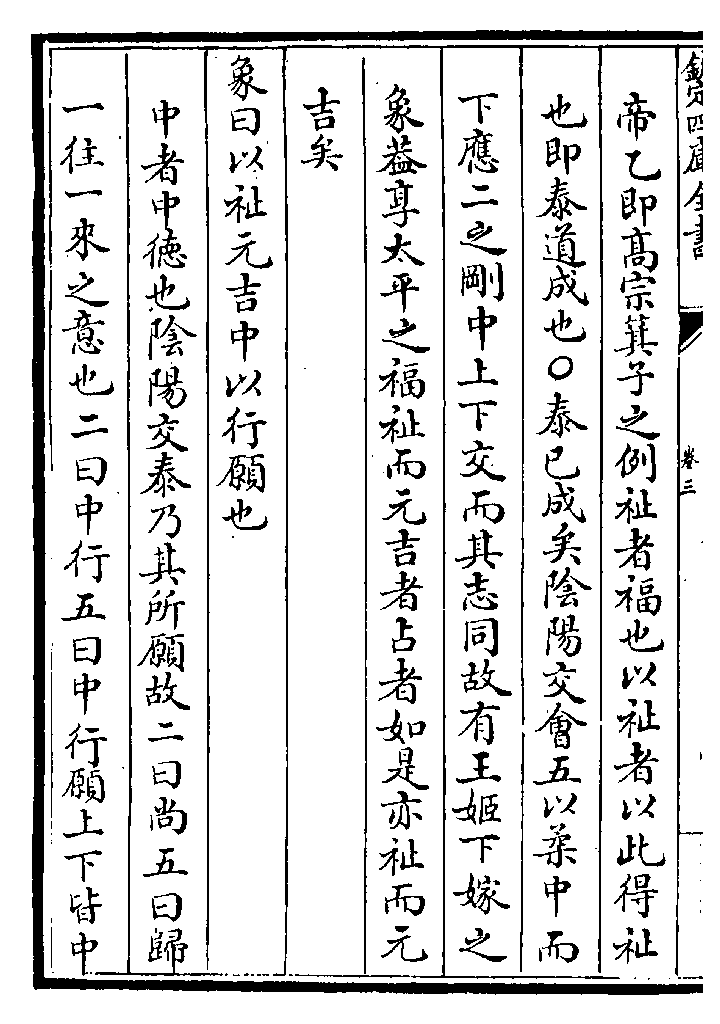 欽定四庫全書
卷三
帝乙即髙宗箕子之例祉者福也以祉者以此得祉
也即泰道成也〇泰已成矣陰陽交會五以柔中而
下應二之剛中上下交而其志同故有王姬下嫁之
象葢享太平之福祉而元吉者占者如是亦祉而元
吉矣
象曰以祉元吉中以行願也
中者中徳也陰陽交泰乃其所願故二曰尚五曰歸
一往一來之意也二曰中行五曰中行願上下皆中